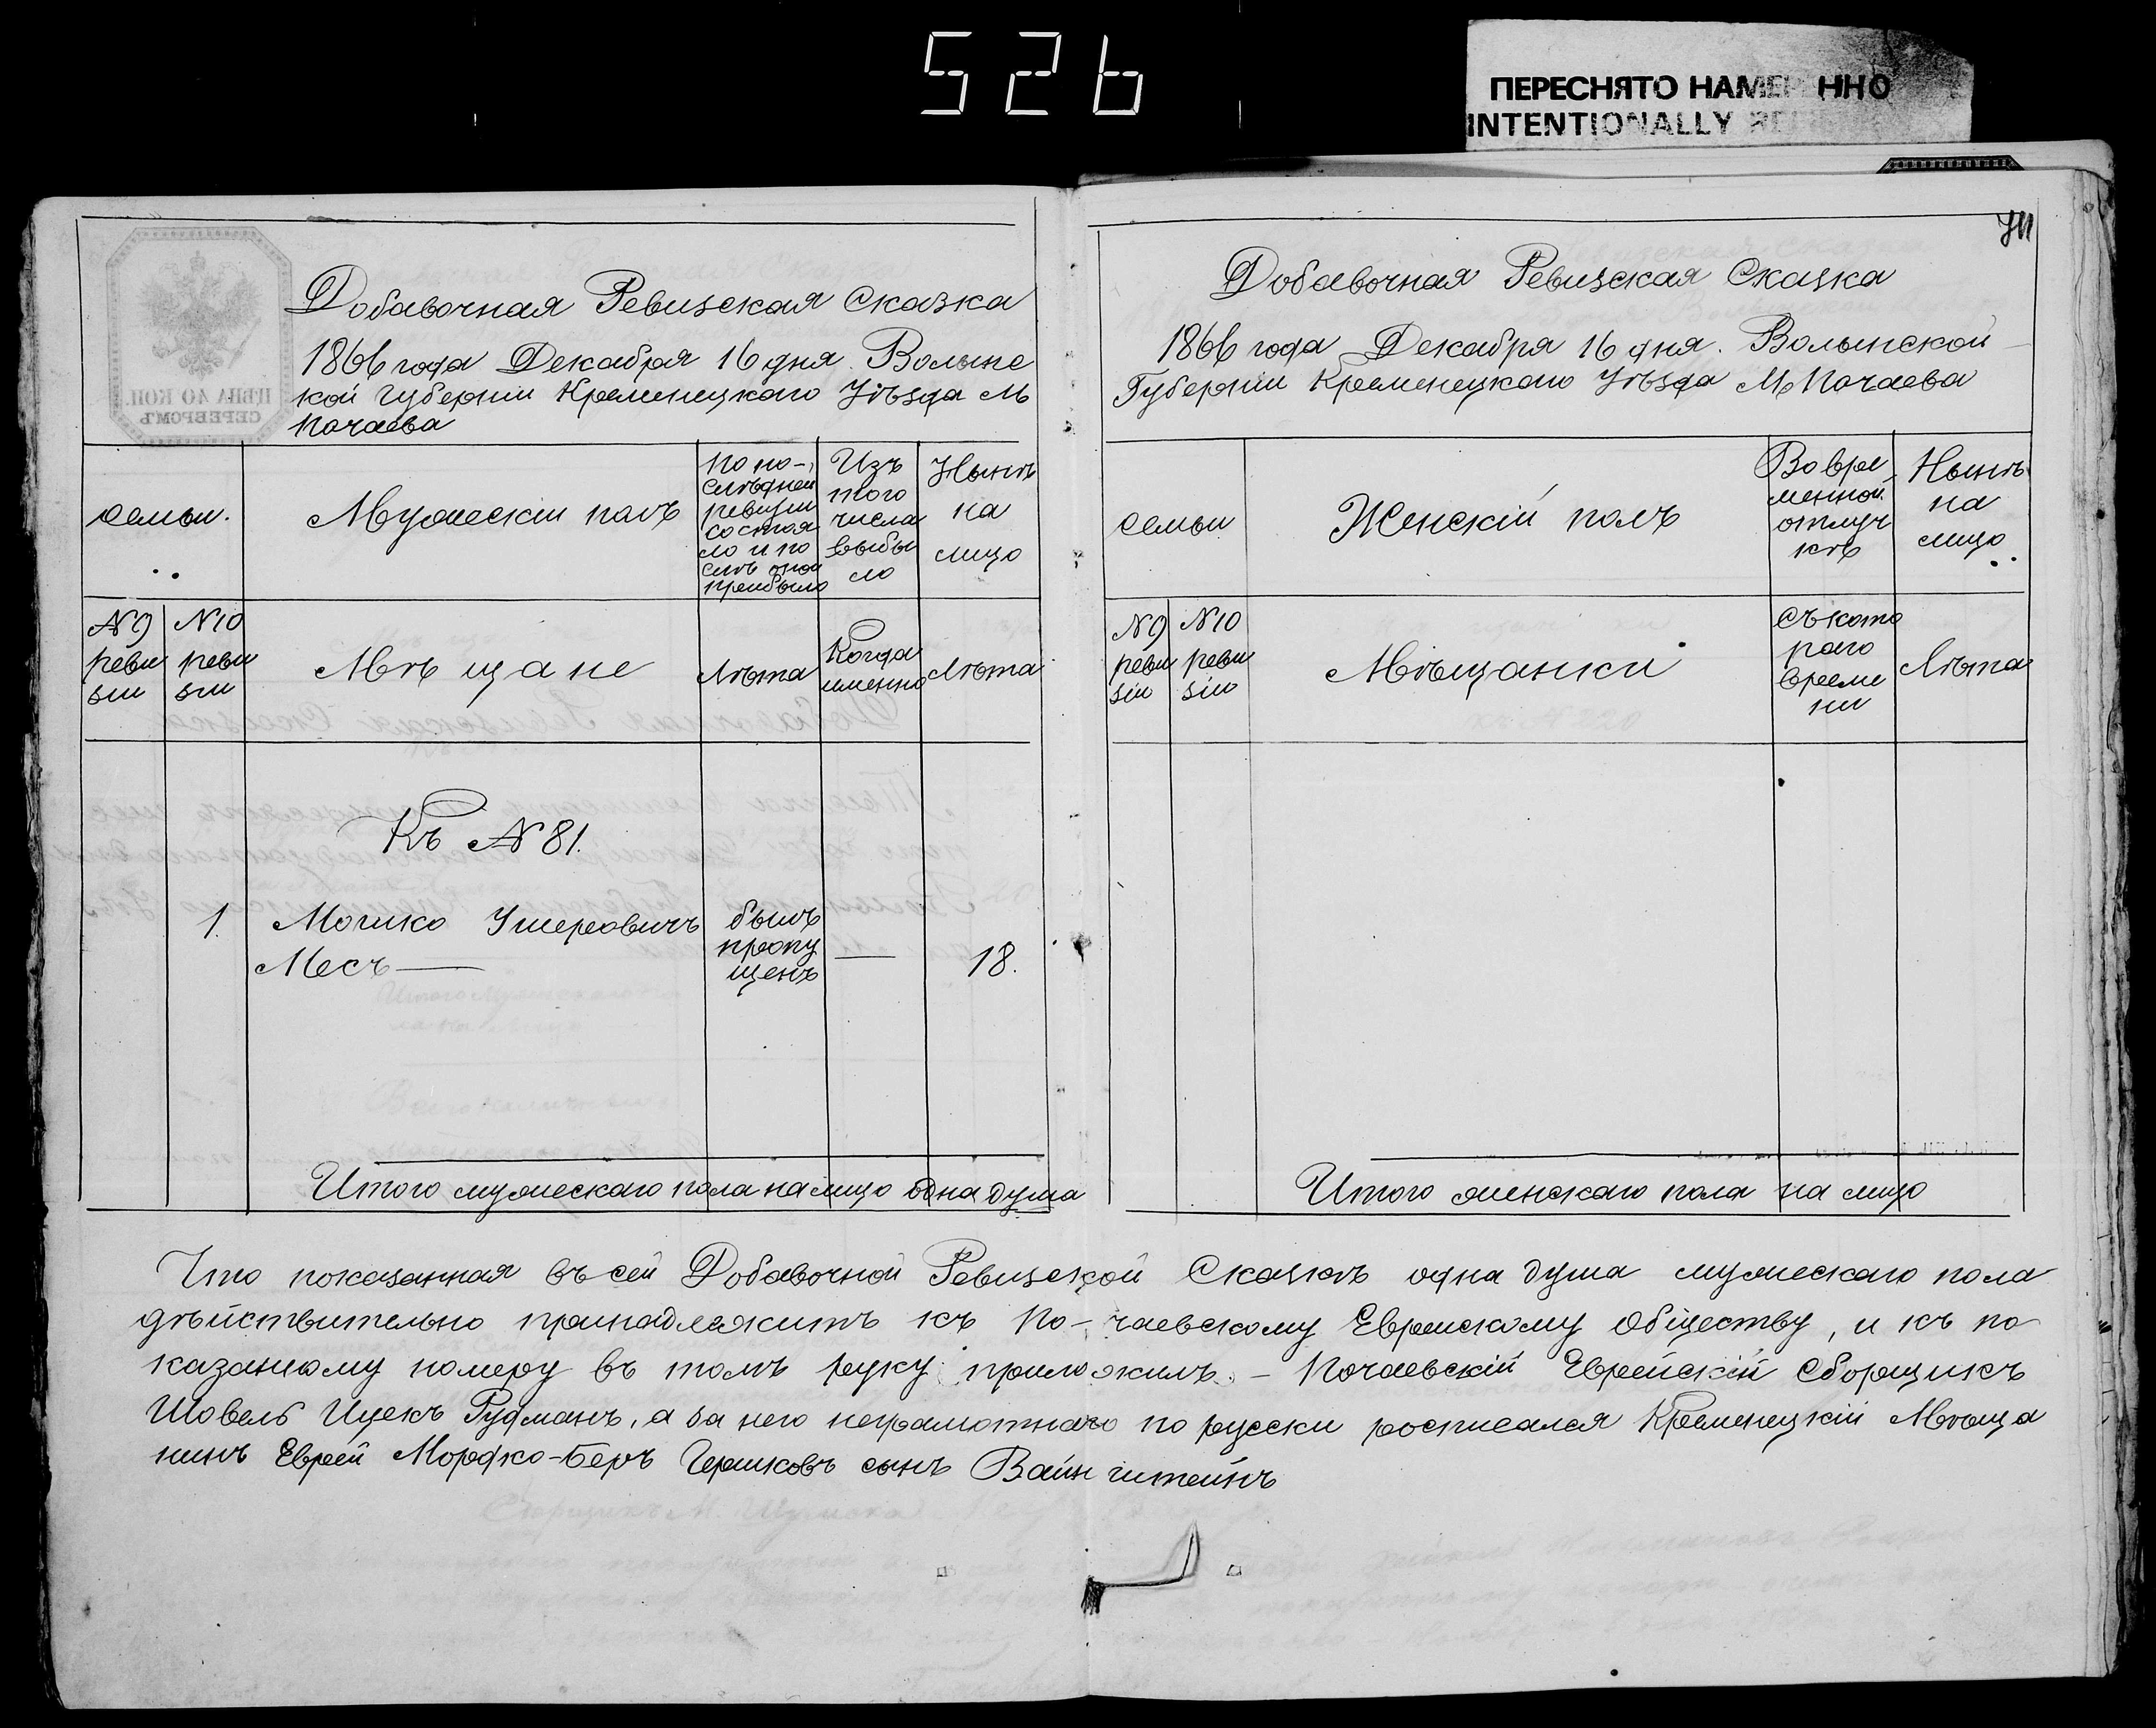 526
ПЕРЕСНЯТО НАМЕ ННО
INTENTIONALLY
Добавочная Ревизская Сказка
1866 года Декабря 16 дня Волынс
кой Губернии Кременецкаго Уѣзда М
Почаева
семьи.
Мужескій полъ
По по-
слѣдней
ревизіи
состоя
ло и по
слѣ оной
прибыло
Изъ
того
числа
выбы
ло
Нынѣ
на
лицо
N 9
реви
зіи
N 10
реви
зіи
Мѣщане
Лѣта
Когда
именно
Лѣта
Къ N 81.
1. Мошко Ушеровичъ
Месъ —
былъ
пропу
щенъ
—
18.
Итого мужескаго пола на лицо одна душа
Добавочная Ревизская Сказка
1866 года Декабря 16 дня. Волынской
Губерніи Кременецкаго Уѣзда М. Почаева
семьи
Женскій полъ
Во вре
менной
отлуч
кѣ
Нынѣ
на
лицо
N 9
реви
зіи
N 10
реви
зіи
Мѣщанки
Съ кото
раго
време
ни
Лѣта
Итого женскаго пола на лицо
Что показанная въ сей Добавочной Ревизской Сказкѣ одна душа мужескаго пола
дѣйствительно принадлежитъ къ По-чаевскому Еврейскому Обществу, и къ по
казанному номеру въ томъ руку приложилъ. – Почаевскій Еврейскій Сборщикъ
Шовель Ицекъ Рудманъ, а за него неграмотнаго по русски росписался Кременецкій Мѣща
нинъ Еврей Мордко-Беръ Гершковъ сынъ Вайнштейнъ
ЦѢНА 40 КОП.
СЕРЕБРОМЪ